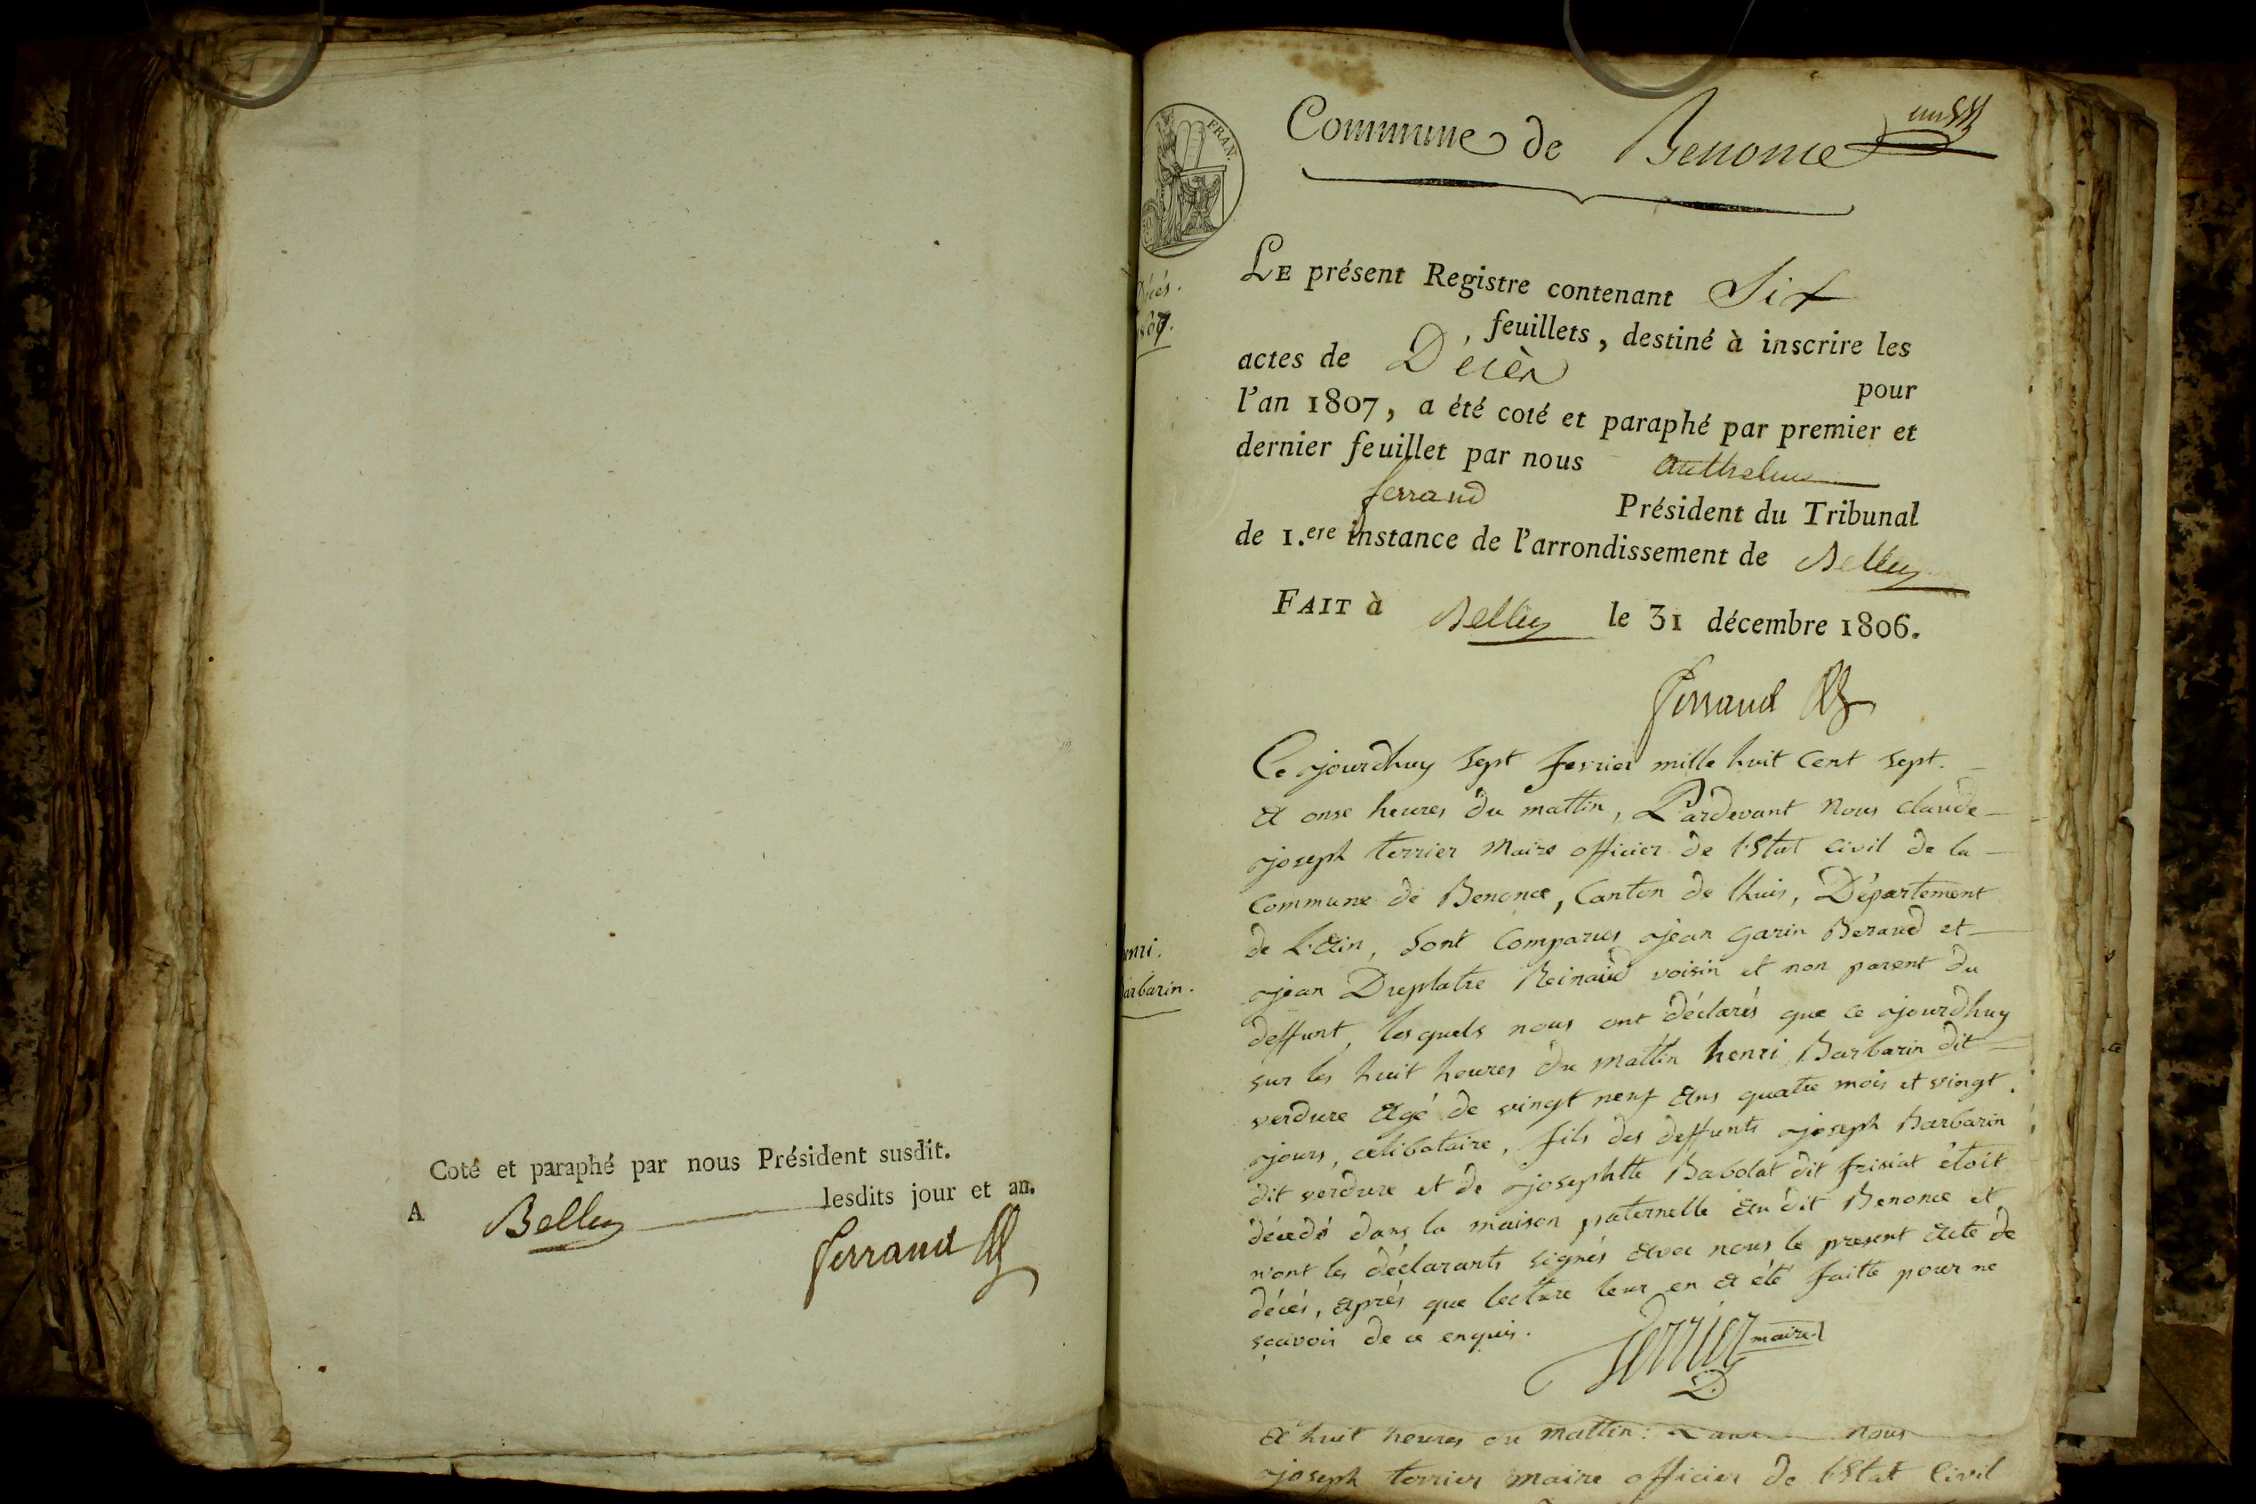 Coté et paraphé par nous Président susdit.
A Belley lesdits jour et an.
Ferrand
FRAN.
Commune de Benonce
un
Décès.
1807.
LE présent Registre contenant Six
feuillets, destiné à inscrire les
actes de Décès pour
l'an 1807, a été coté et paraphé par premier et
dernier feuillet par nous Anthelme
ferrand Président du Tribunal
de 1.ere instance de l'arrondissement de Belley
FAIT à Belley le 31 décembre 1806.
Ferrand
henri.
Barbarin.
Ce jourdhuy sept fevrier mille huit Cent sept.
a onse heures du mattin, Pardevant nous Claude
joseph terrier Maire officier de l'Etat Civil de la
Commune de Benonce, Canton de lhuis, Département
de L'ain, sont Comparus jean Garin Beraud et
jean Duplatre Reinaud voisin et non parent du
deffunt, lesquels nous ont déclarés que ce jourdhuy
sur les huit heures du mattin henri Barbarin dit
verdure agé de vingt neuf ans quatre mois et vingt
jours, celibataire, fils des deffunts joseph Barbarin
dit verdure et de josephtte Babolat dit frisiat étoit
décedé dans la maison paternelle au dit Benonce et
n'ont les déclarants signés avec nous le present acte de
décès, après que lecture leur en a été faitte pour ne
sçavoir de ce enquis.
terrier maire
D.
a huit heures du mattin: nous
joseph terrier maire officier de l'Etat Civil